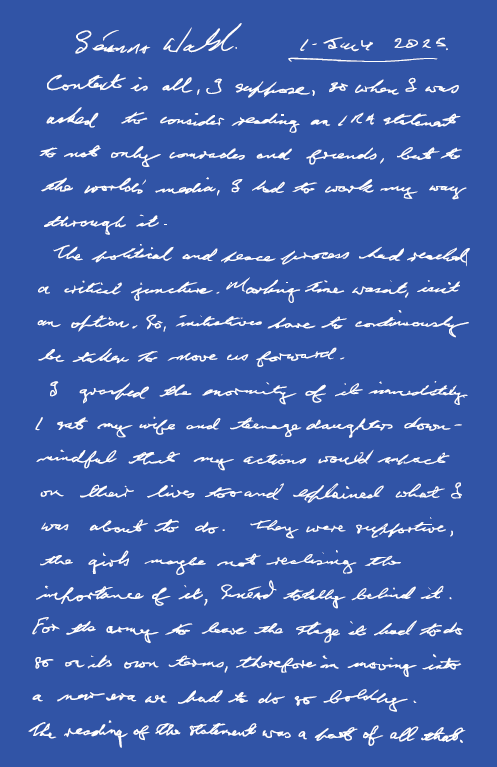 Séanna Walsh. 1-July 2025.
Context is all, I suppose, so when I was
asked to consider reading an IRA statement
to not only comrades and friends, but to
the world's media, I had to work my way
through it.
The political and peace process had reached
a critical juncture. Marking time wasn't, isn't
an option. So, initiatives have to continuously
be taken to move us forward.
I grasped the enormity of it immediately.
I sat my wife and teenage daughters down -
mindful that my actions would impact
on their lives too and explained what I
was about to do. They were supportive,
the girls maybe not realising the
importance of it, Sinéad totally behind it.
For the army to leave the stage it had to do
so on its own terms, therefore in moving into
a new era we had to do so boldly.
The reading of the statement was a part of all that.